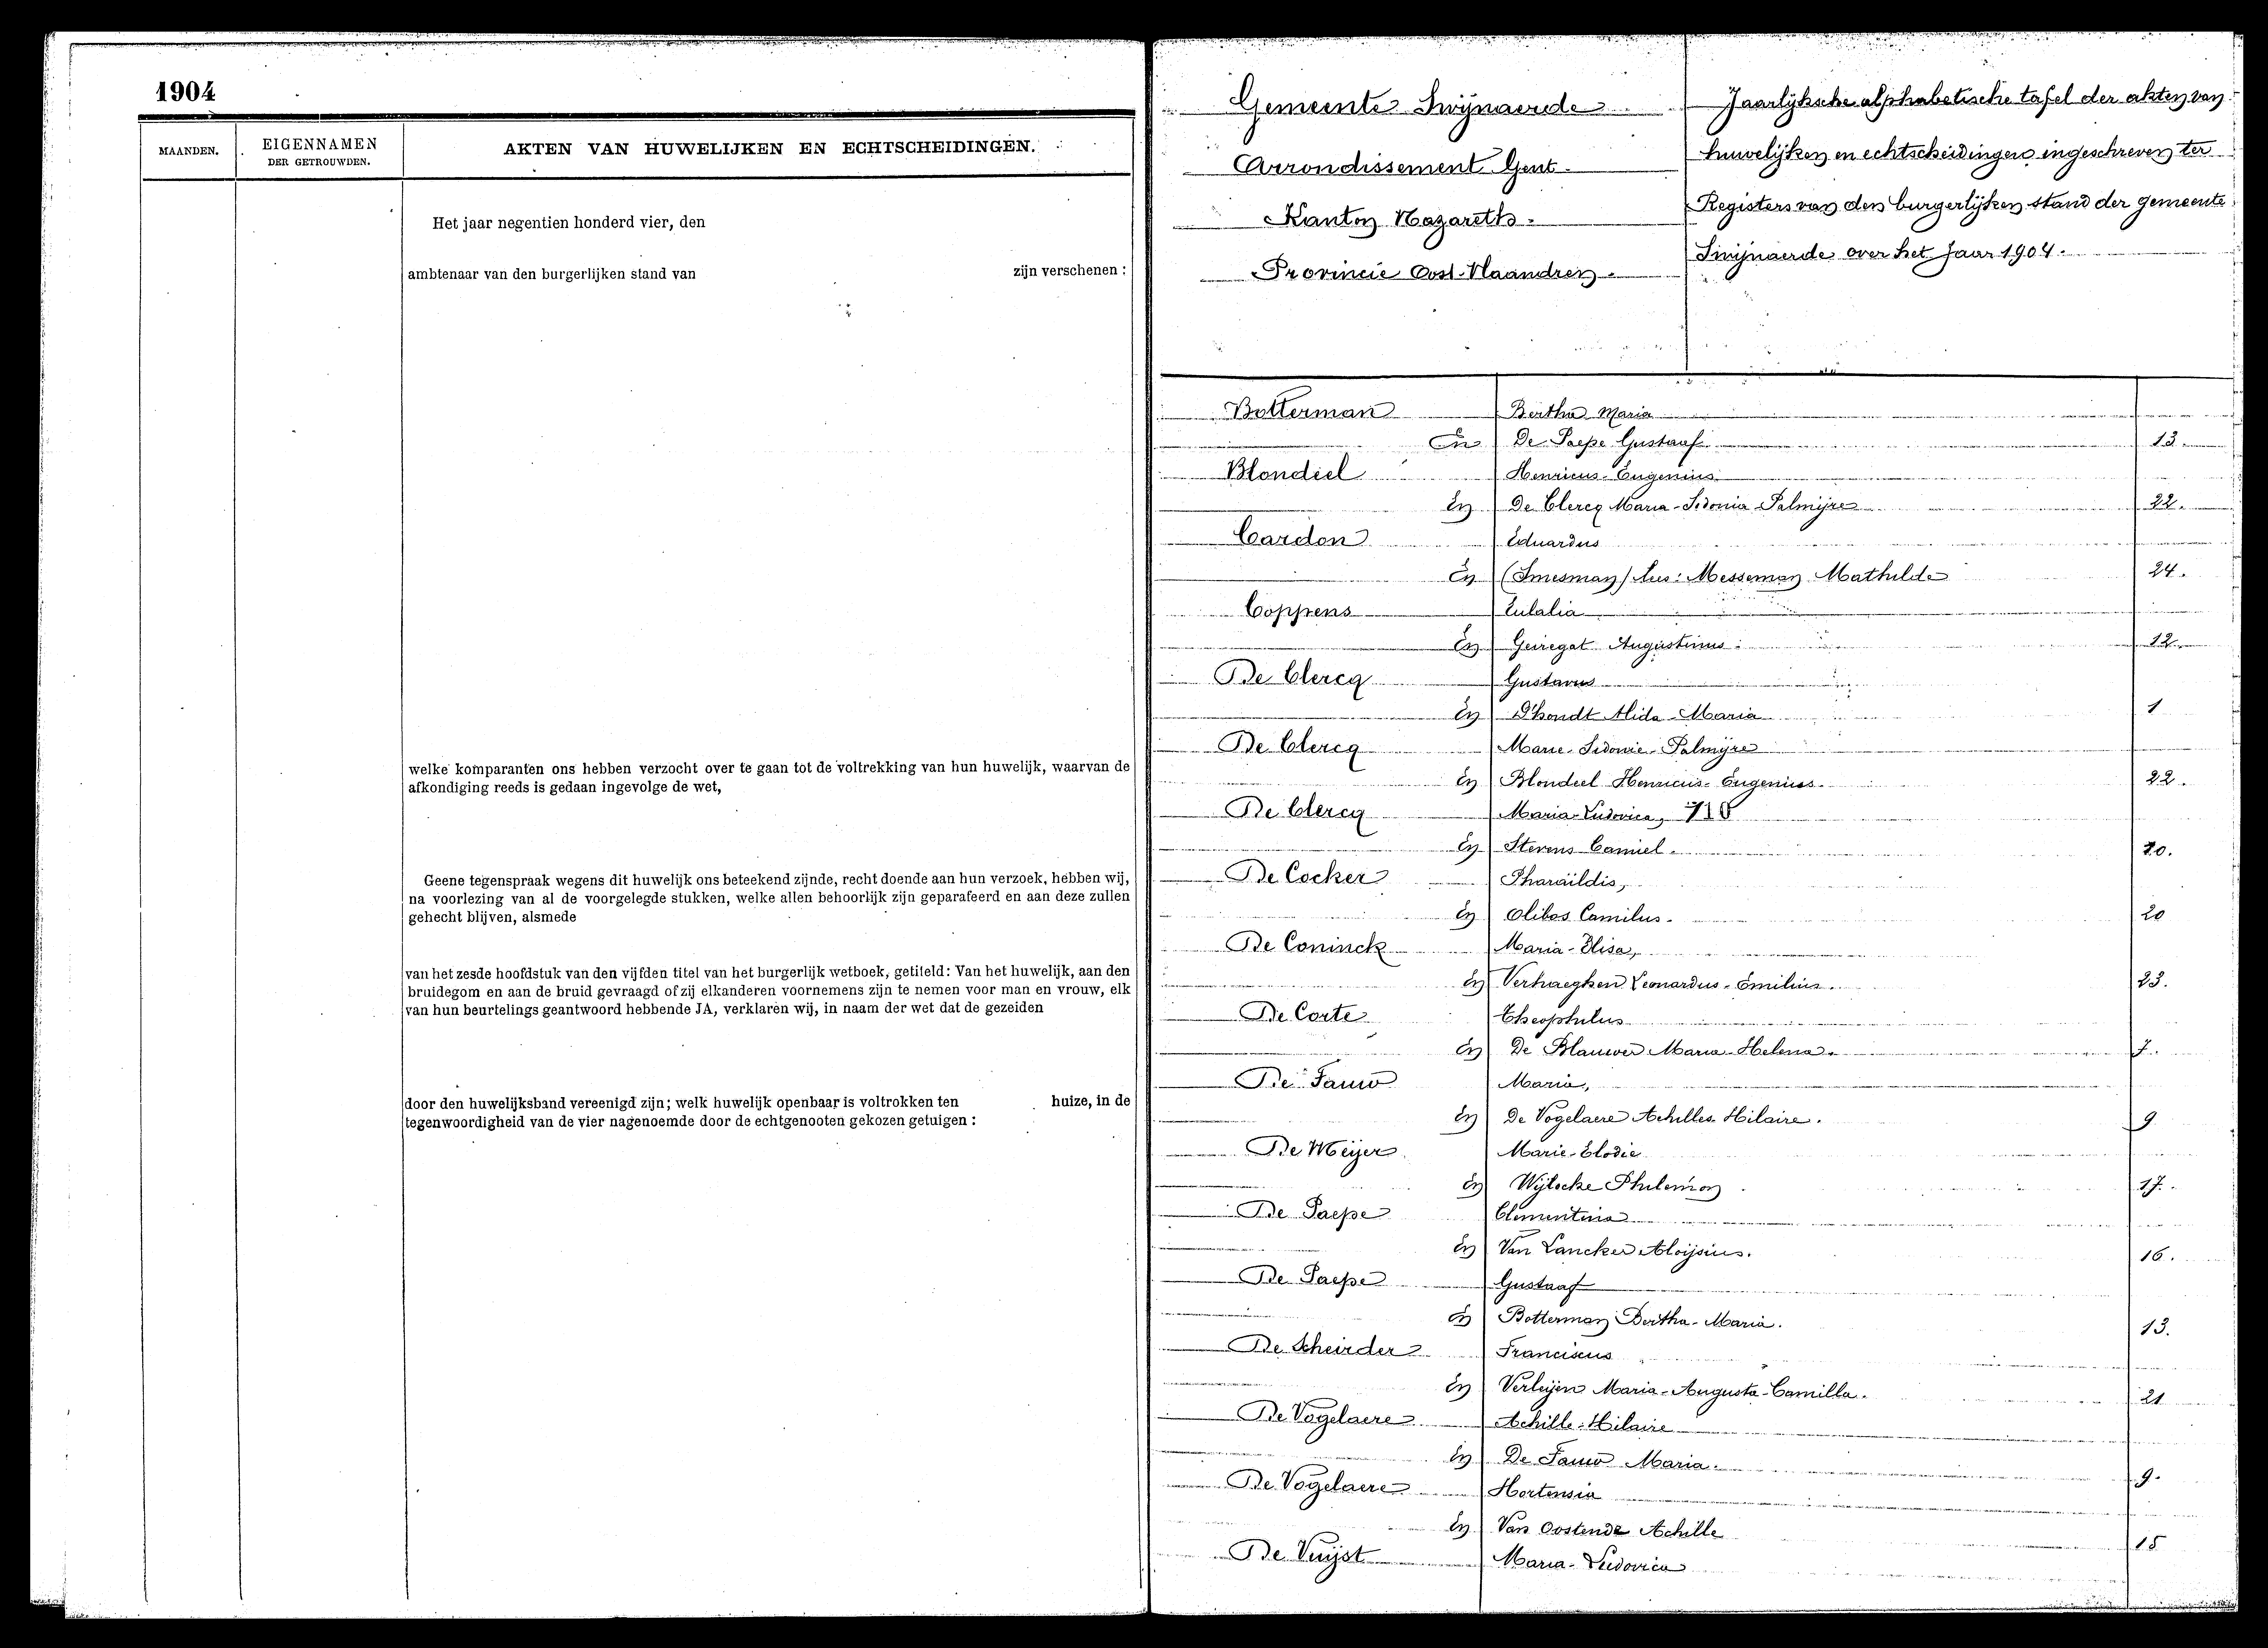 1904
MAANDEN.
EIGENNAMEN
DER GETROUWDEN.
AKTEN VAN HUWELIJKEN EN ECHTSCHEIDINGEN.
Het jaar negentien honderd vier, den
ambtenaar van den burgerlijken stand van zijn verschenen :
welke komparanten ons hebben verzocht over te gaan tot de voltrekking van hun huwelijk, waarvan de
afkondiging reeds is gedaan ingevolge de wet,
Geene tegenspraak wegens dit huwelijk ons beteekend zijnde, recht doende aan hun verzoek, hebben wij,
na voorlezing van al de voorgelegde stukken, welke allen behoorlijk zijn geparafeerd en aan deze zullen
gehecht blijven, alsmede
van het zesde hoofdstuk van den vijfden titel van het burgerlijk wetboek, getiteld: Van het huwelijk, aan den
bruidegom en aan de bruid gevraagd of zij elkanderen voornemens zijn te nemen voor man en vrouw, elk
van hun beurtelings geantwoord hebbende JA, verklaren wij, in naam der wet dat de gezeiden
door den huwelijksband vereenigd zijn; welk huwelijk openbaar is voltrokken ten huize, in de
tegenwoordigheid van de vier nagenoemde door de echtgenooten gekozen getuigen :
Gemeente Swijnaerde
Arrondissement Gent
Kanton Nazareth.
Provincie Oost-Vlaandren.
Jaarlijksche alphabetische tafel der akten van
huwelijken en echtscheidingen ingeschreven ter
Registers van den burgerlijken stand der gemeente
Swijnaerde over het Jaar 1904.
Botterman Bertha Maria
En De Paepe Gustaaf 13.
Blondeel Henricus-Eugenius
En De Clercq Maria-Sidonia-Palmijre 22.
Cardon Eduardus
En (Smesman) lees: Messeman Mathilde 24.
Coppens Eulalia
En Geiregat Augustinus. 12
De Clercq Gustavus
En D'hondt Alida-Maria 1
De Clercq Marie-Sidonie-Palmijre
En Blondeel Henricus-Eugenius. 22.
De Clercq Maria-Ludovica,
En Stevens Camiel. 20.
De Cocker Pharaïldis,
En Olibos Camilus. 20
De Coninck Maria-Elisa,
En Verhaeghen Leonardus-Emilius. 23.
De Corte Theophilus
En De Blauwer Maria-Helena. 7.
De Fauw Maria,
En De Vogelaere Achilles Hilaire. 9
De Meijer Marie-Elodie
En Wijlocke Philemon 17.
De Paepe Clementina
En Van Lancker Aloijsius. 16.
De Paepe Gustaaf
En Botterman Bertha-Maria. 13.
De Scheirder Franciscus
En Verleijen Maria-Augusta-Camilla. 21
De Vogelaere Achille-Hilaire
En De Fauw Maria. 9.
De Vogelaere Hortensia
En Van Oostende Achille 15
De Vuijst Maria-Ludovica